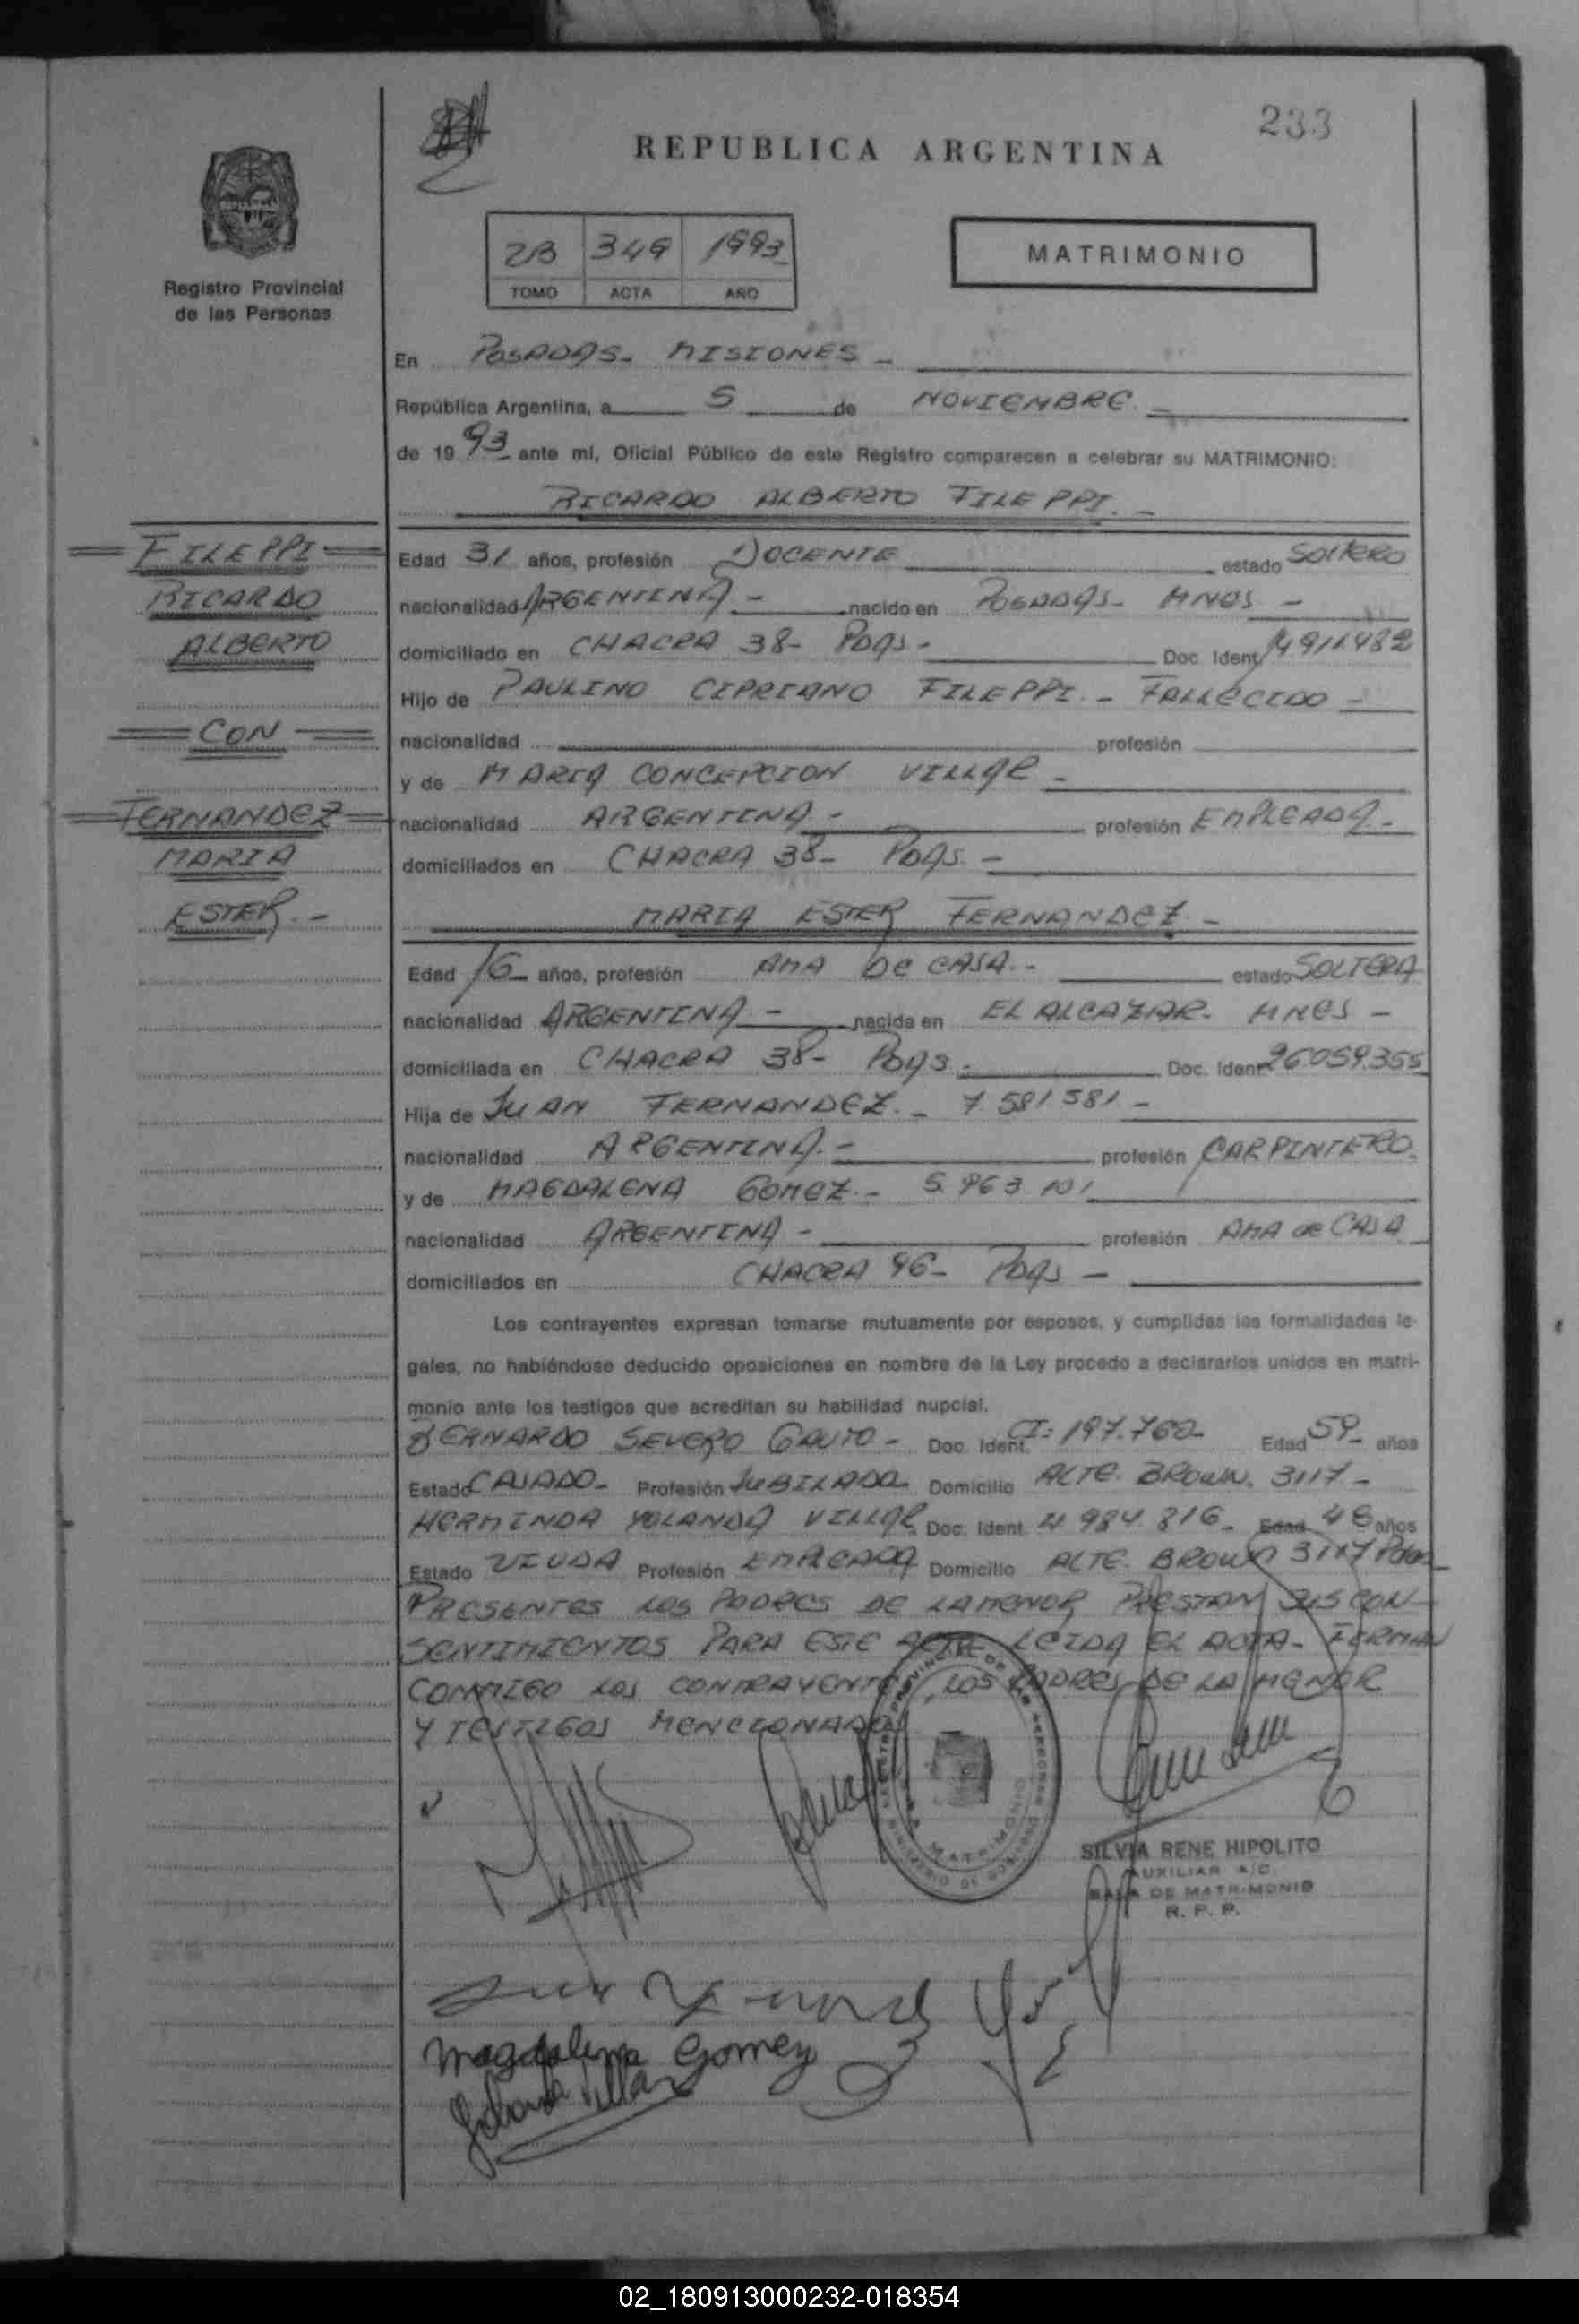 233
REPUBLICA ARGENTINA
Registro Provincial
de las Personas
2B 349 1993
TOMO ACTA AÑO
MATRIMONIO
En POSADAS - MISIONES -
República Argentina, a 5 de NOVIEMBRE -
de 19 93 ante mí, Oficial Público de este Registro comparecen a celebrar su MATRIMONIO:
RICARDO ALBERTO FILEPPI. -
FILEPPI
RICARDO
ALBERTO
CON
FERNANDEZ
MARIA
ESTER. -
Edad 31 años, profesión DOCENTE estado SOLTERO
nacionalidad ARGENTINA - nacido en POSADAS - MNES -
domiciliado en CHACRA 38 - PDAS - Doc. Ident. 14911482
Hijo de PAULINO CIPRIANO FILEPPI. - FALLECIDO -
nacionalidad profesión
y de MARIA CONCEPCION VILLAR -
nacionalidad ARGENTINA - profesión EMPLEADA -
domiciliados en CHACRA 38 - PDAS -
MARIA ESTER FERNANDEZ -
Edad 16 - años, profesión AMA DE CASA. - estado SOLTERA
nacionalidad ARGENTINA - nacida en EL ALCAZAR - MNES -
domiciliada en CHACRA 38 - PDAS - Doc. Ident. 26.059.355
Hija de JUAN FERNANDEZ. - 7 581 581 -
nacionalidad ARGENTINA. - profesión CARPINTERO.
y de MAGDALENA GOMEZ. - 5 963 101
nacionalidad ARGENTINA - profesión AMA DE CASA
domiciliados en CHACRA 96 - PDAS -
Los contrayentes expresan tomarse mutuamente por esposos, y cumplidas las formalidades le-
gales, no habiéndose deducido oposiciones en nombre de la Ley procedo a declararlos unidos en matri-
monio ante los testigos que acreditan su habilidad nupcial.
BERNARDO SEVERO GAUTO - Doc. Ident. CI: 197.760 - Edad 59 - años
Estado CASADO - Profesión JUBILADO Domicilio ALTE. BROWN. 3117 -
HERMINDA YOLANDA VILLAR Doc. Ident. 4 984 816 - Edad 48 años
Estado VIUDA Profesión EMPLEADA Domicilio ALTE. BROWN 3117 Pdas
PRESENTES LOS PADRES DE LA MENOR, PRESTAN SUS CON-
SENTIMIENTOS PARA ESTE ACTO LEIDA EL ACTA - FIRMAN
CONMIGO LOS CONTRAYENTES, LOS PADRES DE LA MENOR
Y TESTIGOS MENCIONADOS
MATRIMONIO
SILVIA RENE HIPOLITO
AUXILIAR A/C.
SALA DE MATRIMONIO
R. P. P.
Magdalena Gomez
Yolanda Villar
02_180913000232-018354